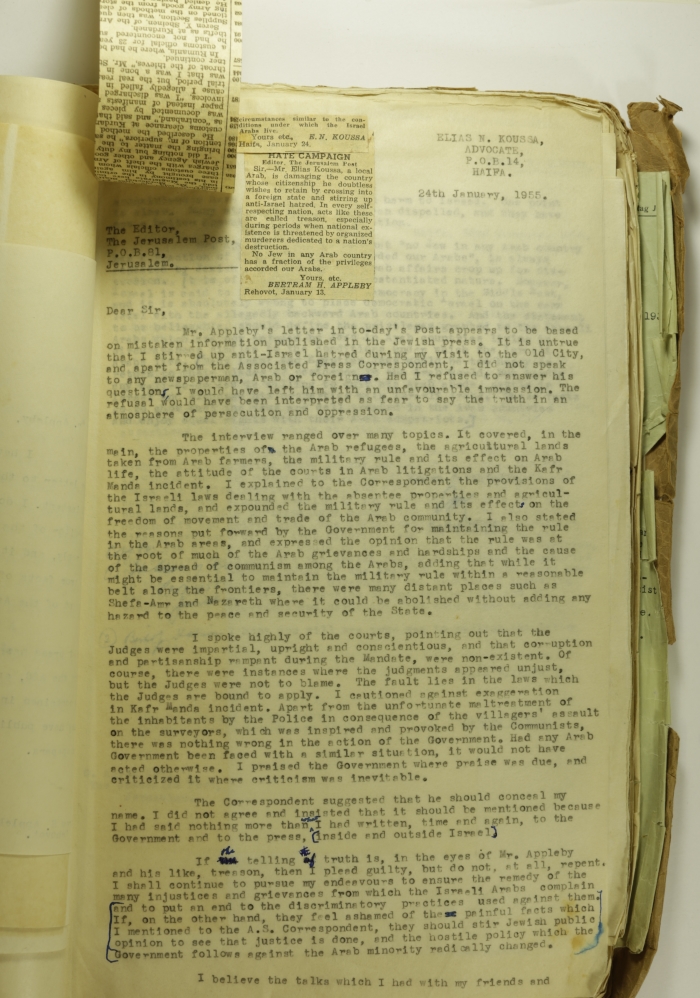 circumstances similar to the con-
ditions under which the Israel
Arabs live.
Yours etc., E. N. KOUSSA
Haifa, January 24.
HATE CAMPAIGN
Editor, The Jerusalem Post
Sir,—Mr. Elias Koussa, a local
Arab, is damaging the country
whose citizenship he doubtless
wishes to retain by crossing into
a foreign state and stirring up
anti-Israel hatred. In every self-
respecting nation, acts like these
are called treason, especially
during periods when national ex-
istence is threatened by organized
murderers dedicated to a nation's
destruction.
No Jew in any Arab country
has a fraction of the privileges
accorded our Arabs.
Yours, etc.
BERTRAM H. APPLEBY
Rehovot, January 13.
ELIAS N. KOUSSA,
ADVOCATE,
P.O.B.14,
HAIFA.
24th January, 1955.
The Editor,
The Jerusalem Post,
P.O.B.81,
Jerusalem.
Dear Sir,
Mr. Appleby's letter in to-day's Post appears to be based
on mistaken information published in the Jewish press. It is untrue
that I stirred up anti-Israel hatred during my visit to the Old City,
and apart from the Associated Press Correspondent, I did not speak
to any newspaperman, Arab or foreign. Had I refused to answer his
questions I would have left him with an unfavourable impression. The
refusal would have been interpreted as fear to say the truth in an
atmosphere of persecution and oppression.
The interview ranged over many topics. It covered, in the
main, the properties of the Arab refugees, the agricultural lands
taken from Arab farmers, the military rule and its effect on Arab
life, the attitude of the courts in Arab litigations and the Kafr
Manda incident. I explained to the Correspondent the provisions of
the Israeli laws dealing with the absentee properties and agricul-
tural lands, and expounded the military rule and its effects on the
freedom of movement and trade of the Arab community. I also stated
the reasons put forward by the Government for maintaining the rule
in the Arab areas, and expressed the opinion that the rule was at
the root of much of the Arab grievances and hardships and the cause
of the spread of communism among the Arabs, adding that while it
might be essential to maintain the military rule within a reasonable
belt along the frontiers, there were many distant places such as
Shefa-Amr and Nazareth where it could be abolished without adding any
hazard to the peace and security of the State.
I spoke highly of the courts, pointing out that the
Judges were impartial, upright and conscientious, and that corruption
and partisanship rampant during the Mandate, were non-existent. Of
course, there were instances where the judgments appeared unjust,
but the Judges were not to blame. The fault lies in the laws which
the Judges are bound to apply. I cautioned against exaggeration
in Kafr Manda incident. Apart from the unfortunate maltreatment of
the inhabitants by the Police in consequence of the villagers' assault
on the surveyors, which was inspired and provoked by the Communists,
there was nothing wrong in the action of the Government. Had any Arab
Government been faced with a similar situation, it would not have
acted otherwise. I praised the Government where praise was due, and
criticized it where criticism was inevitable.
The Correspondent suggested that he should conceal my
name. I did not agree and insisted that it should be mentioned because
I had said nothing more than what I had written, time and again, to the
Government and to the press, (inside and outside Israel)
If the telling of the truth is, in the eyes of Mr. Appleby
and his like, treason, then I plead guilty, but do not, at all, repent.
I shall continue to pursue my endeavours to ensure the remedy of the
many injustices and grievances from which the Israeli Arabs complain
and to put an end to the discriminatory practices used against them.
If, on the other hand, they feel ashamed of the painful facts which
I mentioned to the A.S. Correspondent, they should stir Jewish public
opinion to see that justice is done, and the hostile policy which the
Government follows against the Arab minority radically changed.
I believe the talks which I had with my friends and